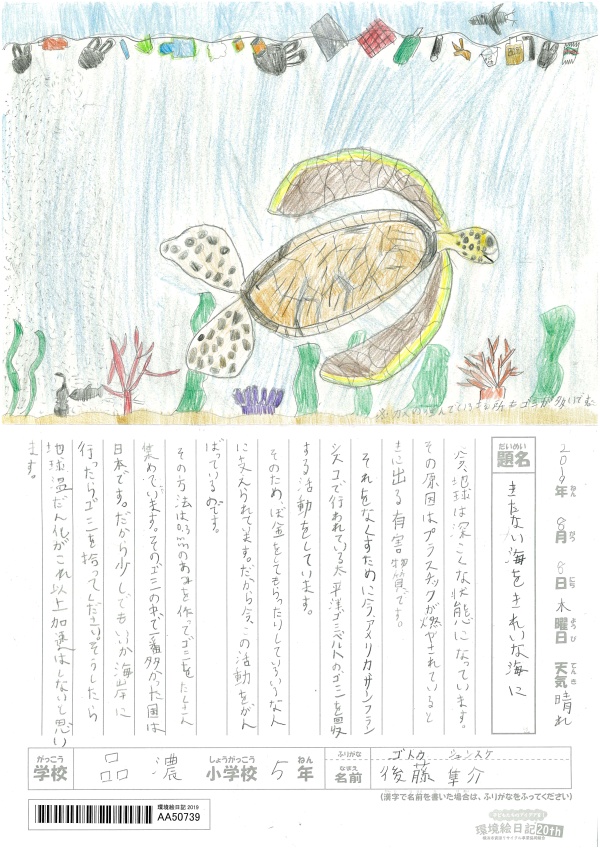 2019年 8月 8日 木曜日 天気 晴れ
ねん がつ にち ようび てんき
だいめい
題名
きたない海をきれいな海に
今、地球は深こくな状態になっています。
その原因はプラスチックが燃やされていると
きに出る有害物質です。
それをなくすために今、アメリカサンフラン
シスコで行われている太平洋ゴミベルトのゴミを回収
する活動をしています。
そのため、ぼ金をしてもらったりしていろいろな人
に支えられています。だから今、この活動をがん
ばっているのです。
その方法は
のあみを作って、ゴミをたくさん
集めています。そのゴミの中で一番多かった国は
日本です。だから少しでもいいから海岸に
行ったらゴミを拾ってください。そうしたら
地球温だん化がこれ以上加速はしないと思い
ます。
がっこう しょうがっこう ねん ふりがな ゴトウ シュンスケ
学校 品濃 小学校 5年 なまえ 名前 後藤 隼介
(漢字で名前を書いた場合は、ふりがなをふってください)
環境絵日記 2019
AA50739
環境絵日記20th